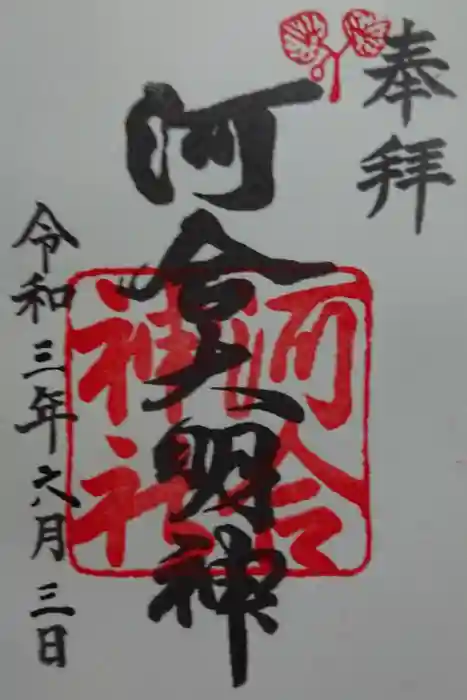 奉拝
河合大明神
河合
神社
令和三年六月三日